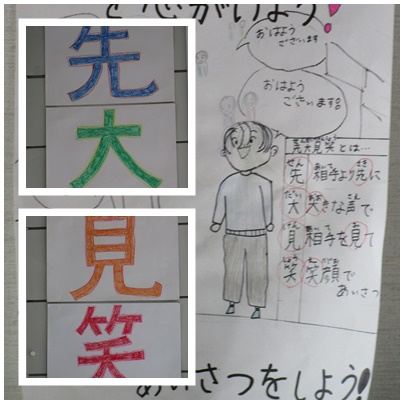 を心がけよう!
おはよう
ございます
おはよう
ございます!
先大見笑とは…
先 相手より先に
大 大きな声で
見 相手を見て
笑 笑顔で
あいさつ
あいさつをしよう!
先
大
見
笑